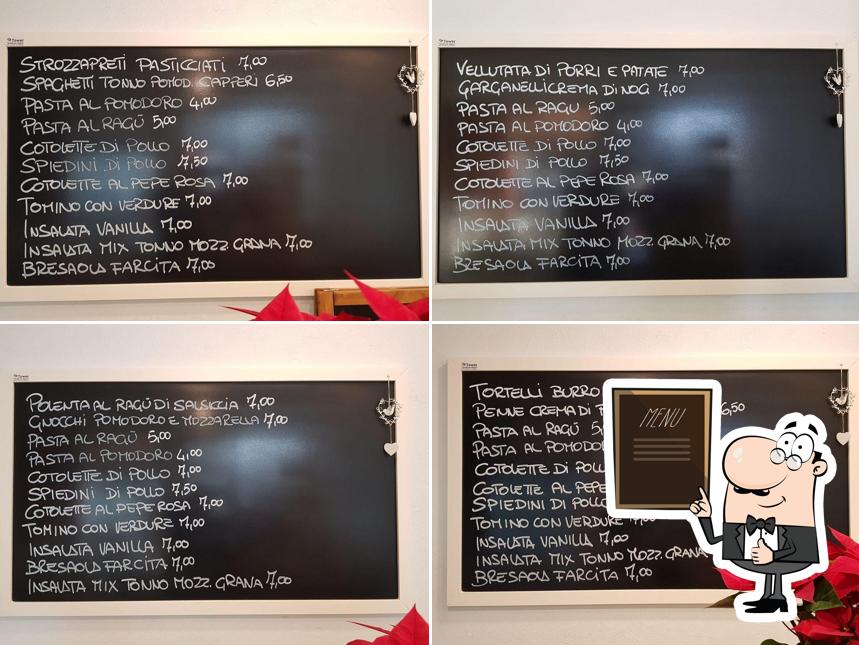 STROZZAPRETI PASTICCIATI 7,00
SPAGHETTI TONNO POMOD. CAPPERI 6,50
PASTA AL POMODORO 4,00
PASTA AL RAGÙ 5,00
COTOLETTE DI POLLO 7,00
SPIEDINI DI POLLO 7,50
COTOLETTE AL PEPE ROSA 7,00
TOMINO CON VERDURE 7,00
INSALATA VANILLA 7,00
INSALATA MIX TONNO MOZZ. GRANA 7,00
BRESAOLA FARCITA 7,00
VELLUTATA DI PORRI E PATATE 7,00
GARGANELLI CREMA DI NOCI 7,00
PASTA AL RAGU 5,00
PASTA AL POMODORO 4,00
COTOLETTE DI POLLO 7,00
SPIEDINI DI POLLO 7,50
COTOLETTE AL PEPE ROSA 7,00
TOMINO CON VERDURE 7,00
INSALATA VANILLA 7,00
INSALATA MIX TONNO MOZZ. GRANA 7,00
BRESAOLA FARCITA 7,00
POLENTA AL RAGÙ DI SALSICCIA 7,00
GNOCCHI POMODORO E MOZZARELLA 7,00
PASTA AL RAGÙ 5,00
PASTA AL POMODORO 4,00
COTOLETTE DI POLLO 7,00
SPIEDINI DI POLLO 7,50
COTOLETTE AL PEPE ROSA 7,00
TOMINO CON VERDURE 7,00
INSALATA VANILLA 7,00
BRESAOLA FARCITA 7,00
INSALATA MIX TONNO MOZZ. GRANA 7,00
TORTELLI BURRO
PENNE CREMA DI 6,50
PASTA AL RAGÙ 5,
PASTA AL POMODO
COTOLETTE DI POLL
COTOLETTE AL PEPE
SPIEDINI DI POLLO
TOMINO CON VERDURE 7,00
INSALATA VANILLA 7,00
INSALATA MIX TONNO MOZZ. GRANA
BRESAOLA FARCITA 7,00
MENU